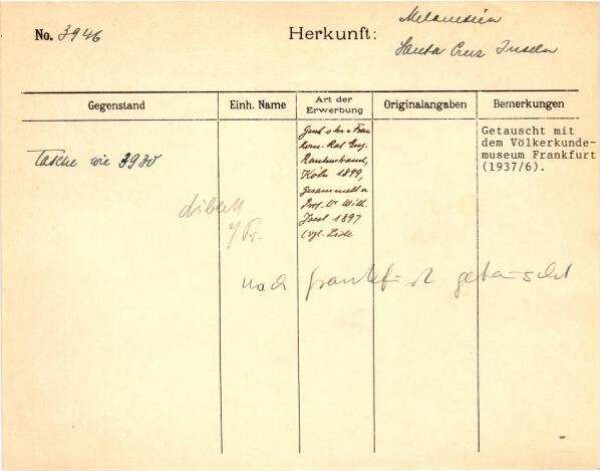 No. 3946
Herkunft: Melanesien
Santa Cruz Inseln
Gegenstand
Einh. Name
Art der
Erwerbung
Originalangaben
Bemerkungen
Tasche wie 3930
Kom. Rat Eug.
Rautenstrauch,
Köln 1899,
gesammelt v.
Prof. Dr. Wilh.
Joest 1897
(vgl. Liste
Getauscht mit
dem Völkerkunde-
museum Frankfurt
(1937/6).
nach Frankfurt getauscht